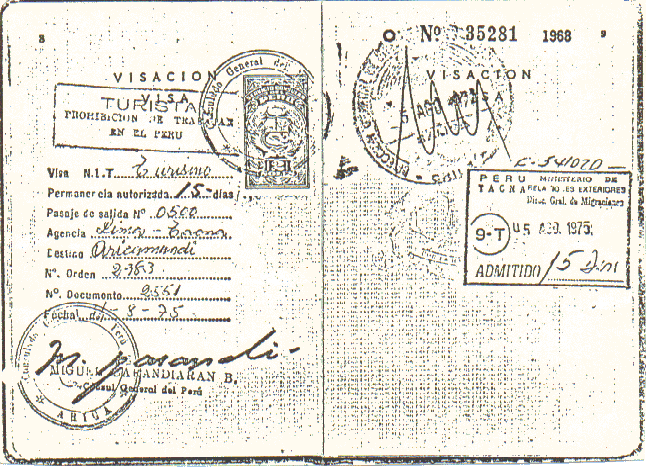 8
VISACION
VISA
TURISTA
PROHIBICION DE TRABAJAR
EN EL PERU
Consulado General del
Visa N.I.T. Turismo
Permanencia autorizada 15 días
Pasaje de salida Nº 0500
Agencia
Destino
Nº. Orden 2763
Nº. Documento 2551
Fecha
8-75
MIGUEL BARANDIARAN B.
Cónsul General del Perú
ARICA
Nº 35281 1968 9
VISACION
PERU MINISTERIO DE
TACNA RELACIONES EXTERIORES
Direc. Gral. de Migraciones
9-T 05 AGO. 1975
ADMITIDO 15 Días